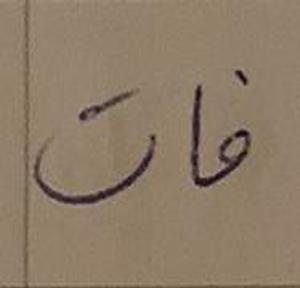 فات